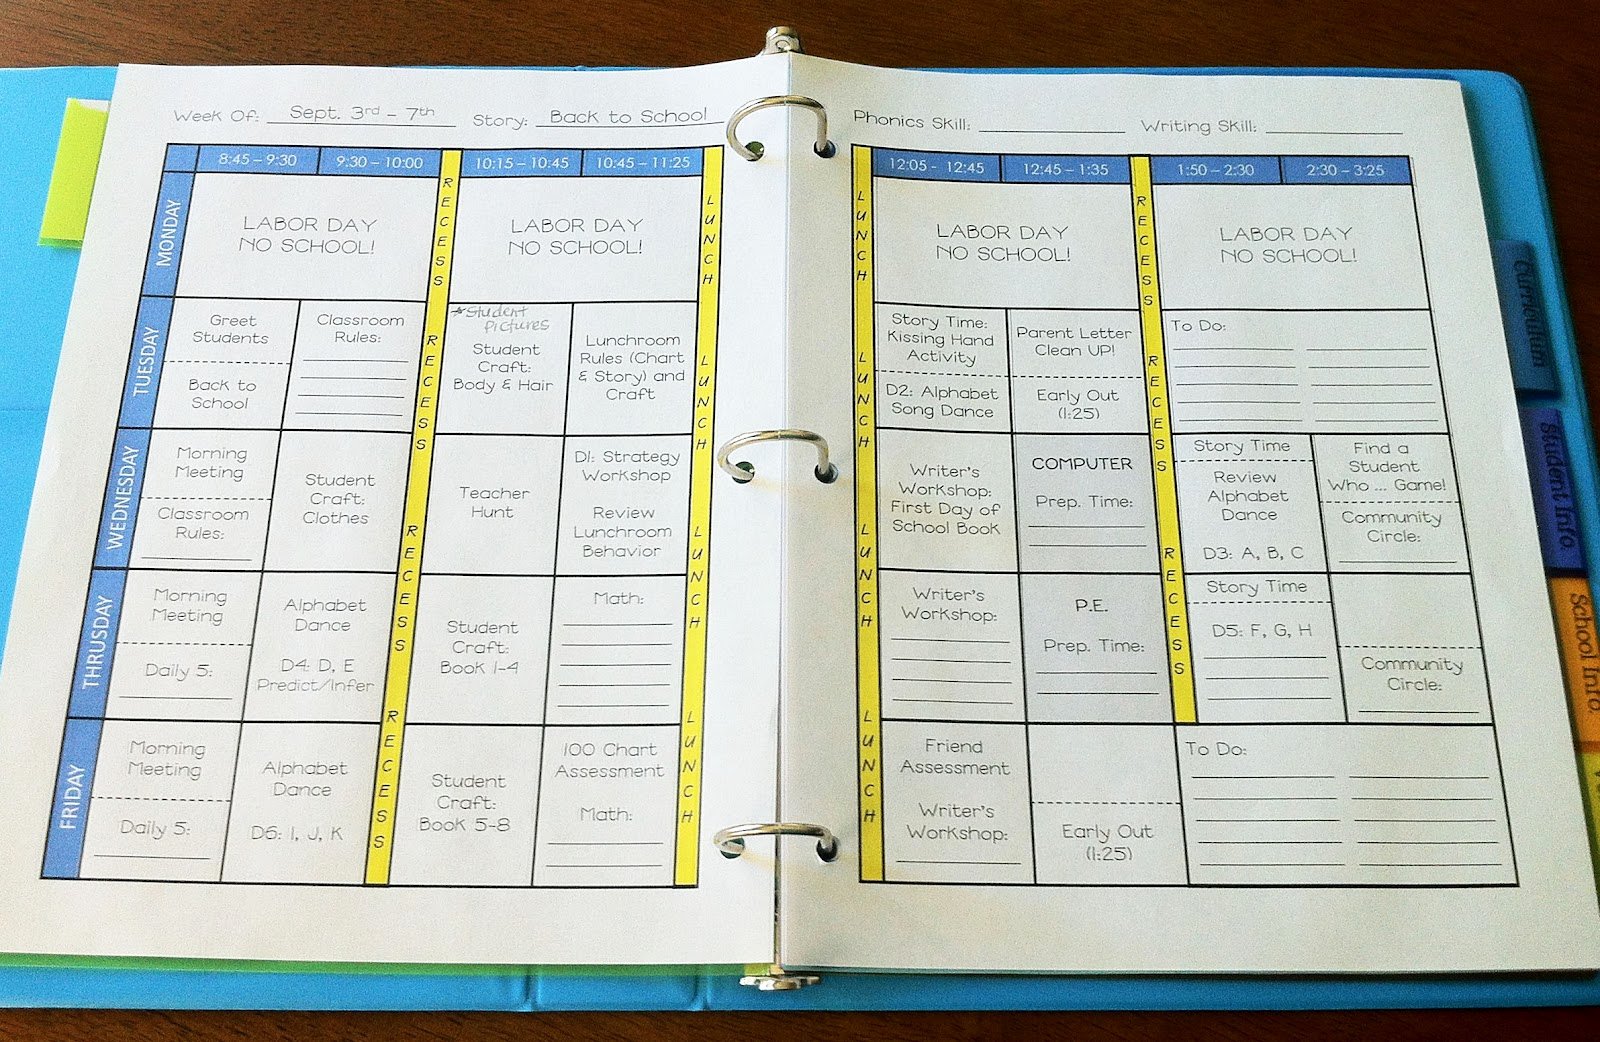 Week Of: Sept. 3rd - 7th Story: Back to School
Phonics Skill: Writing Skill:
8:45 – 9:30 9:30 – 10:00 10:15 – 10:45 10:45 – 11:25
12:05 - 12:45 12:45 – 1:35 1:50 – 2:30 2:30 – 3:25
RECESS RECESS RECESS RECESS
LUNCH LUNCH LUNCH LUNCH
LUNCH LUNCH LUNCH LUNCH
RECESS RECESS RECESS
MONDAY
LABOR DAY
NO SCHOOL!
LABOR DAY
NO SCHOOL!
LABOR DAY
NO SCHOOL!
LABOR DAY
NO SCHOOL!
TUESDAY
Greet
Students
Back to
School
Classroom
Rules:
Student
Pictures
Student
Craft:
Body & Hair
Lunchroom
Rules (Chart
& Story) and
Craft
Story Time:
Kissing Hand
Activity
D2: Alphabet
Song Dance
Parent Letter
Clean UP!
Early Out
(1:25)
To Do:
WEDNESDAY
Morning
Meeting
Classroom
Rules:
Student
Craft:
Clothes
Teacher
Hunt
D1: Strategy
Workshop
Review
Lunchroom
Behavior
Writer's
Workshop:
First Day of
School Book
COMPUTER
Prep. Time:
Story Time
Review
Alphabet
Dance
D3: A, B, C
Find a
Student
Who ... Game!
Community
Circle:
THRUSDAY
Morning
Meeting
Daily 5:
Alphabet
Dance
D4: D, E
Predict/Infer
Student
Craft:
Book 1-4
Math:
Writer's
Workshop:
P.E.
Prep. Time:
Story Time
D5: F, G, H
Community
Circle:
FRIDAY
Morning
Meeting
Daily 5:
Alphabet
Dance
D6: I, J, K
Student
Craft:
Book 5-8
100 Chart
Assessment
Math:
Friend
Assessment
Writer's
Workshop:
Early Out
(1:25)
To Do:
Curriculum
Student Info.
School Info.